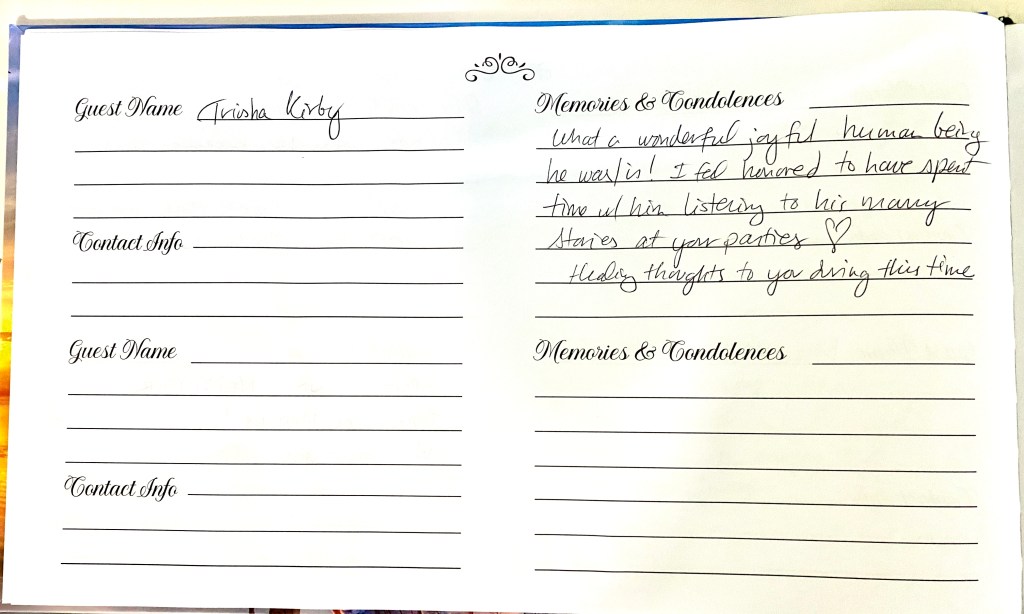 Guest Name Trisha Kirby
Contact Info
Memories & Condolences
What a wonderful joyful human being
he was/is! I feel honored to have spent
time w/ him listening to his many
stories at your parties ♡
Healing thoughts to you during this time
Guest Name
Contact Info
Memories & Condolences